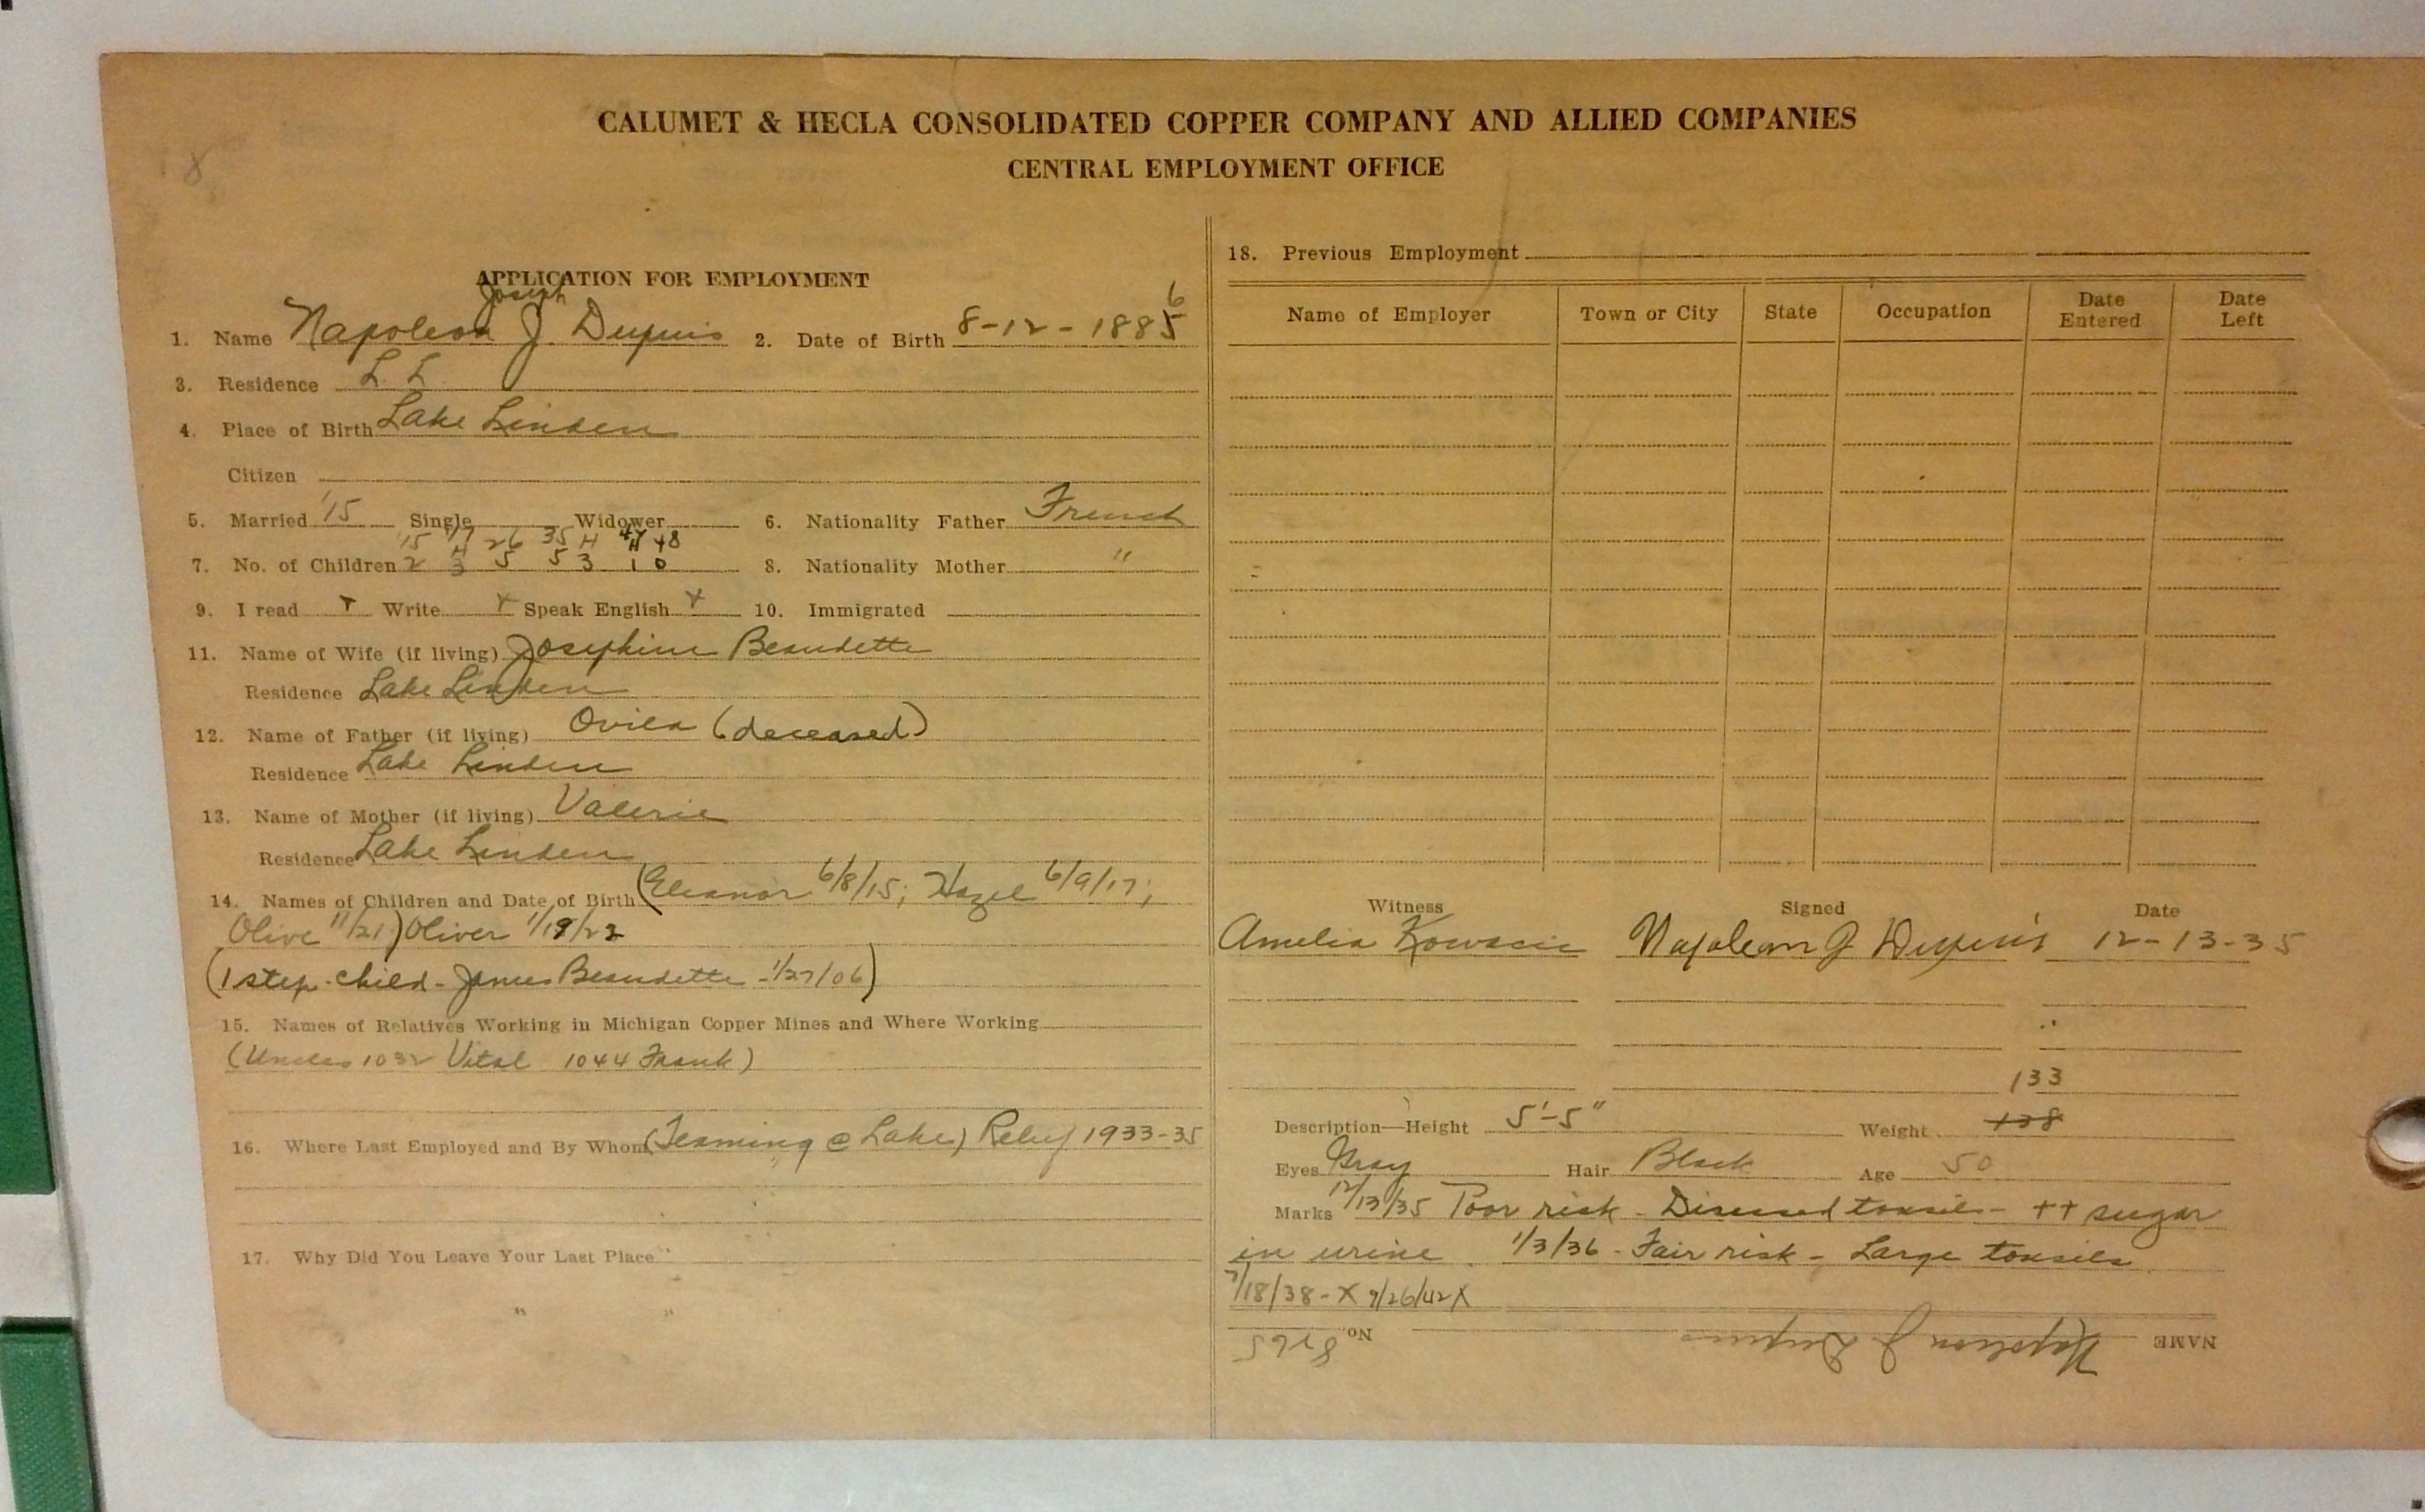 8
CALUMET & HECLA CONSOLIDATED COPPER COMPANY AND ALLIED COMPANIES
CENTRAL EMPLOYMENT OFFICE
APPLICATION FOR EMPLOYMENT
Joseph
1. Name Napoleon J. Dupuis 2. Date of Birth 8-12-1885 6
3. Residence L. L.
4. Place of Birth Lake Linden
Citizen
5. Married '15 Single Widower 6. Nationality Father French
'15 '17 26 35 H 47 48
7. No. of Children 2 3 4 5 5 3 1 0 8. Nationality Mother "
9. I read x Write x Speak English x 10. Immigrated
11. Name of Wife (if living) Josephine Beaudette
Residence Lake Linden
12. Name of Father (if living) Ovila (deceased)
Residence Lake Linden
13. Name of Mother (if living) Valerie
Residence Lake Linden
14. Names of Children and Date of Birth (Eleanor 6/8/15; Hazel 6/9/17;
Olive 11/21) Oliver 1/19/22
(1 step-child - James Beaudette - 1/27/06)
15. Names of Relatives Working in Michigan Copper Mines and Where Working
(Uncles 1032 Vital 1044 Frank)
16. Where Last Employed and By Whom (Teaming @ Lake) Relief 1933-35
17. Why Did You Leave Your Last Place
18. Previous Employment
Name of Employer Town or City State Occupation Date Entered Date Left
Witness Signed Date
Amelia Napoleon J Dupuis 12-13-35
133
Description—Height 5'-5" Weight 138
Eyes Gray Hair Black Age 50
Marks 12/13/35 Poor risk - Diseased tonsils - ++ sugar
in urine. 1/3/36 - Fair risk - Large tonsils.
7/18/38 - X 9/26/42 X
NAME Napoleon J Dupuis No. 8265